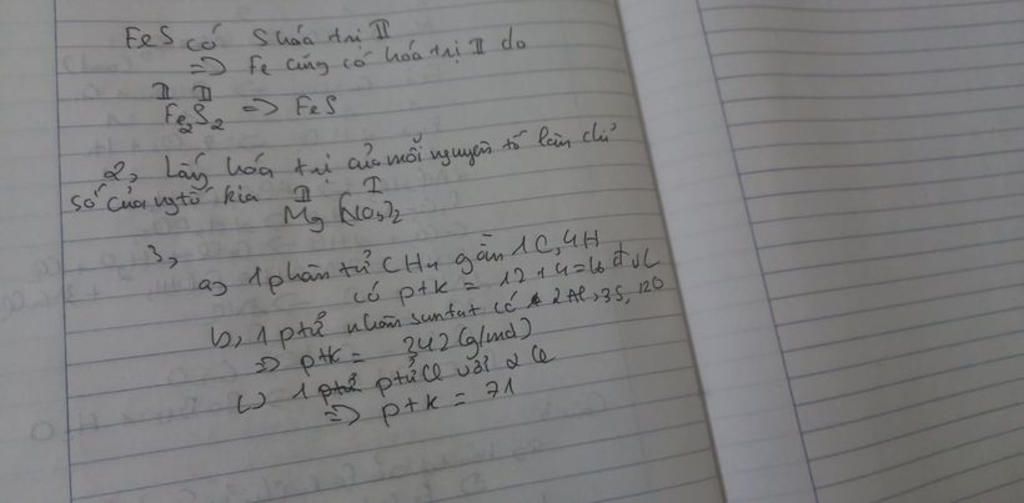 FeS có S hóa trị II
=> Fe cũng có hóa trị II do
II II
Fe2S2 => FeS
2, Lấy hóa trị của mỗi nguyên tố làm chỉ
số của ngtố kia II I
Mg (NO3)2
3,
a, 1 phân tử CH4 gồm 1C, 4H
có ptk = 12 + 4 = 16 đvC
b, 1 ptử nhôm sunfat có 2Al, 3S, 12O
=> ptk = 342 (g/mol)
c, 1 ptử Cl với 2 Cl
=> ptk = 71